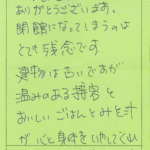 ありがとうございます。
閉館になってしまうのは
とても残念です。
建物は古いですが
温みのある接客と
おいしいごはんとみそ汁
が心と身体をいやしてくれ